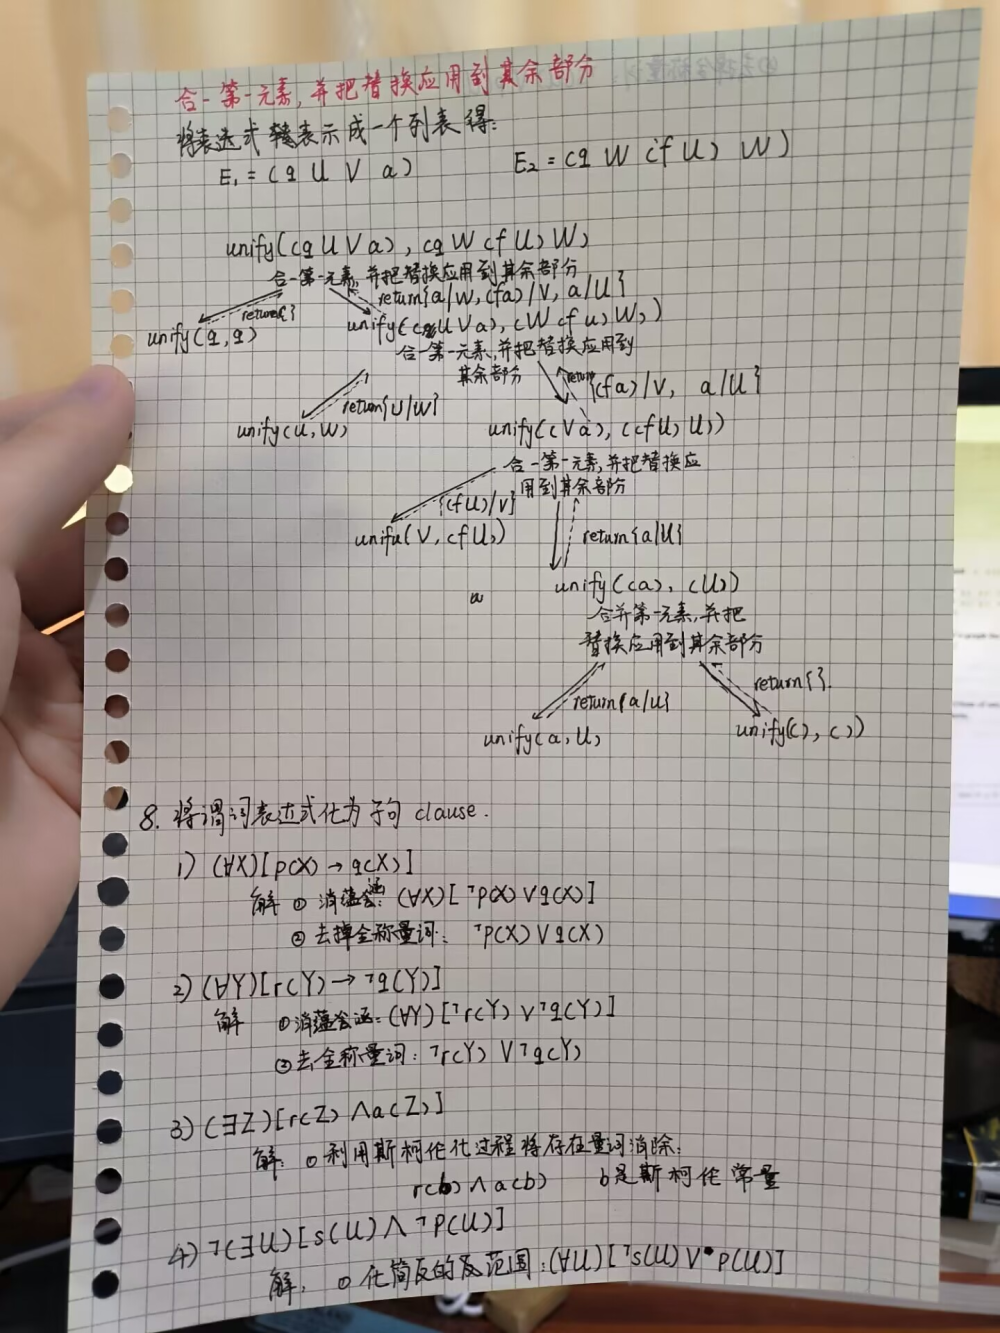 合一第一元素,并把替换应用到其余部分
将表达式表示成一个列表得:
E₁=(q U V a) E₂=(q W (f U) W)
unify((q U V a), (q W (f U) W)
合一第一元素,并把替换应用到其余部分
return{a/W,(fa)/V, a/U}
return{}
unify(q,q)
unify((U V a), (W (f U) W))
合一第一元素,并把替换应用到
其余部分
return {(fa)/V, a/U}
return{U/W}
unify(U,W)
unify((V a), ((f U) U))
合一第一元素,并把替换应
用到其余部分
{(f U)/V}
unifu(V,(f U))
return{a/U}
unify((a), (U))
合并第一元素,并把
替换应用到其余部分
return{a/U}
return{}.
unify(a,U)
unify((),())
8. 将谓词表达式化为子句 clause.
1) (∀X)[p(X)→q(X)]
解 ① 消蕴涵: (∀X)[¬p(X)∨q(X)]
② 去掉全称量词: ¬p(X)∨q(X)
2) (∀Y)[r(Y)→¬q(Y)]
解 ①消蕴含涵:(∀Y)[¬r(Y)∨¬q(Y)]
②去全称量词:¬r(Y)∨¬q(Y)
3) (∃Z)[r(Z)∧a(Z)]
解: ① 利用斯柯伦化过程将存在量词消除:
r(b)∧a(b) b是斯柯伦常量
4) ¬(∃U)[s(U)∧¬p(U)]
解: ① 化简反的反范围:(∀U)[¬s(U)∨p(U)]